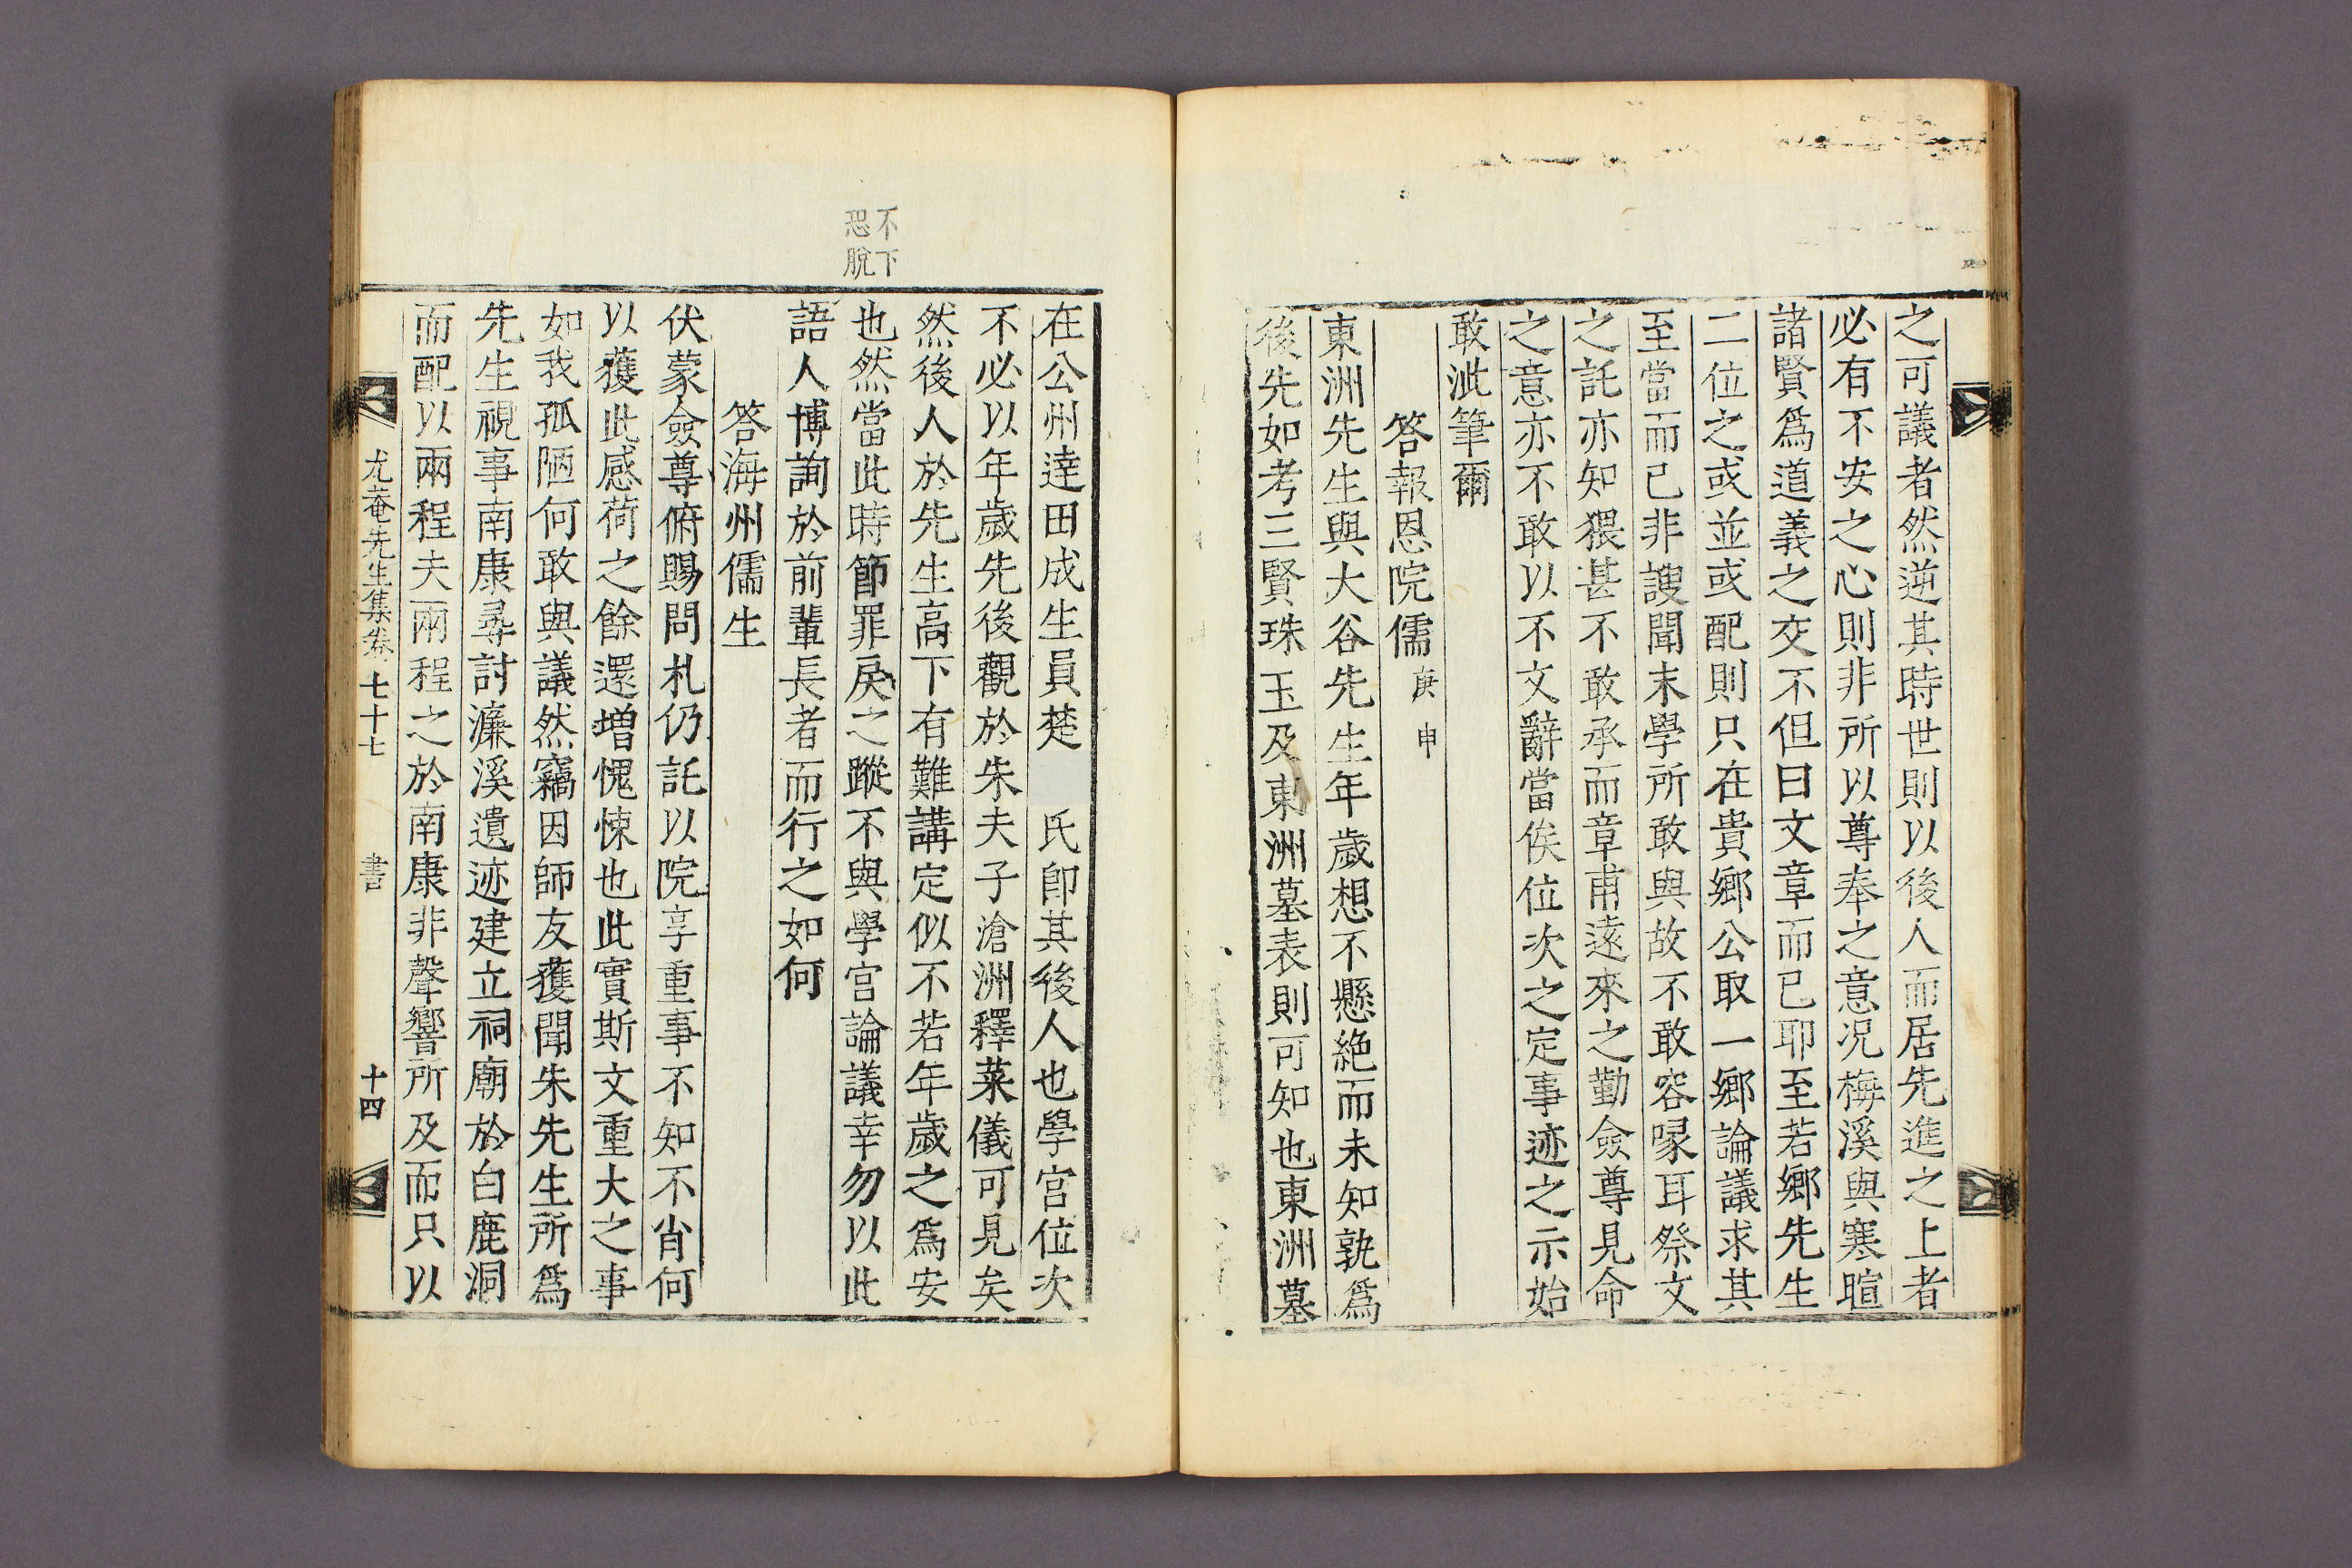 之可議者然逆其時世則以後人而居先進之上者
必有不安之心則非所以尊奉之意况梅溪與寒暄
諸賢爲道義之交不但曰文章而已耶至若鄉先生
二位之或並或配則只在貴鄉公取一鄉論議求其
至當而已非謏聞末學所敢與故不敢容喙耳祭文
之託亦知猥甚不敢承而章甫遠來之勤僉尊見命
之意亦不敢以不文辭當俟位次之定事迹之示始
敢泚筆爾
答報恩院儒庚申
東洲先生與大谷先生年歲想不懸絶而未知孰爲
後先如考三賢珠玉及東洲墓表則可知也東洲墓
不下
恐脫
在公州達田成生員楚　氏卽其後人也學宮位次
不必以年歲先後觀於朱夫子滄洲釋菜儀可見矣
然後人於先生高下有難講定似不若年歲之爲安
也然當此時節罪戾之蹤不與學宮論議幸勿以此
語人博詢於前輩長者而行之如何
答海州儒生
伏蒙僉尊俯賜問札仍託以院享重事不知不肖何
以獲此感荷之餘還增愧悚也此實斯文重大之事
如我孤陋何敢與議然竊因師友獲聞朱先生所爲
先生視事南康尋討濂溪遺迹建立祠廟於白鹿洞
而配以兩程夫兩程之於南康非聲響所及而只以
尤菴先生集卷七十七　書　十四